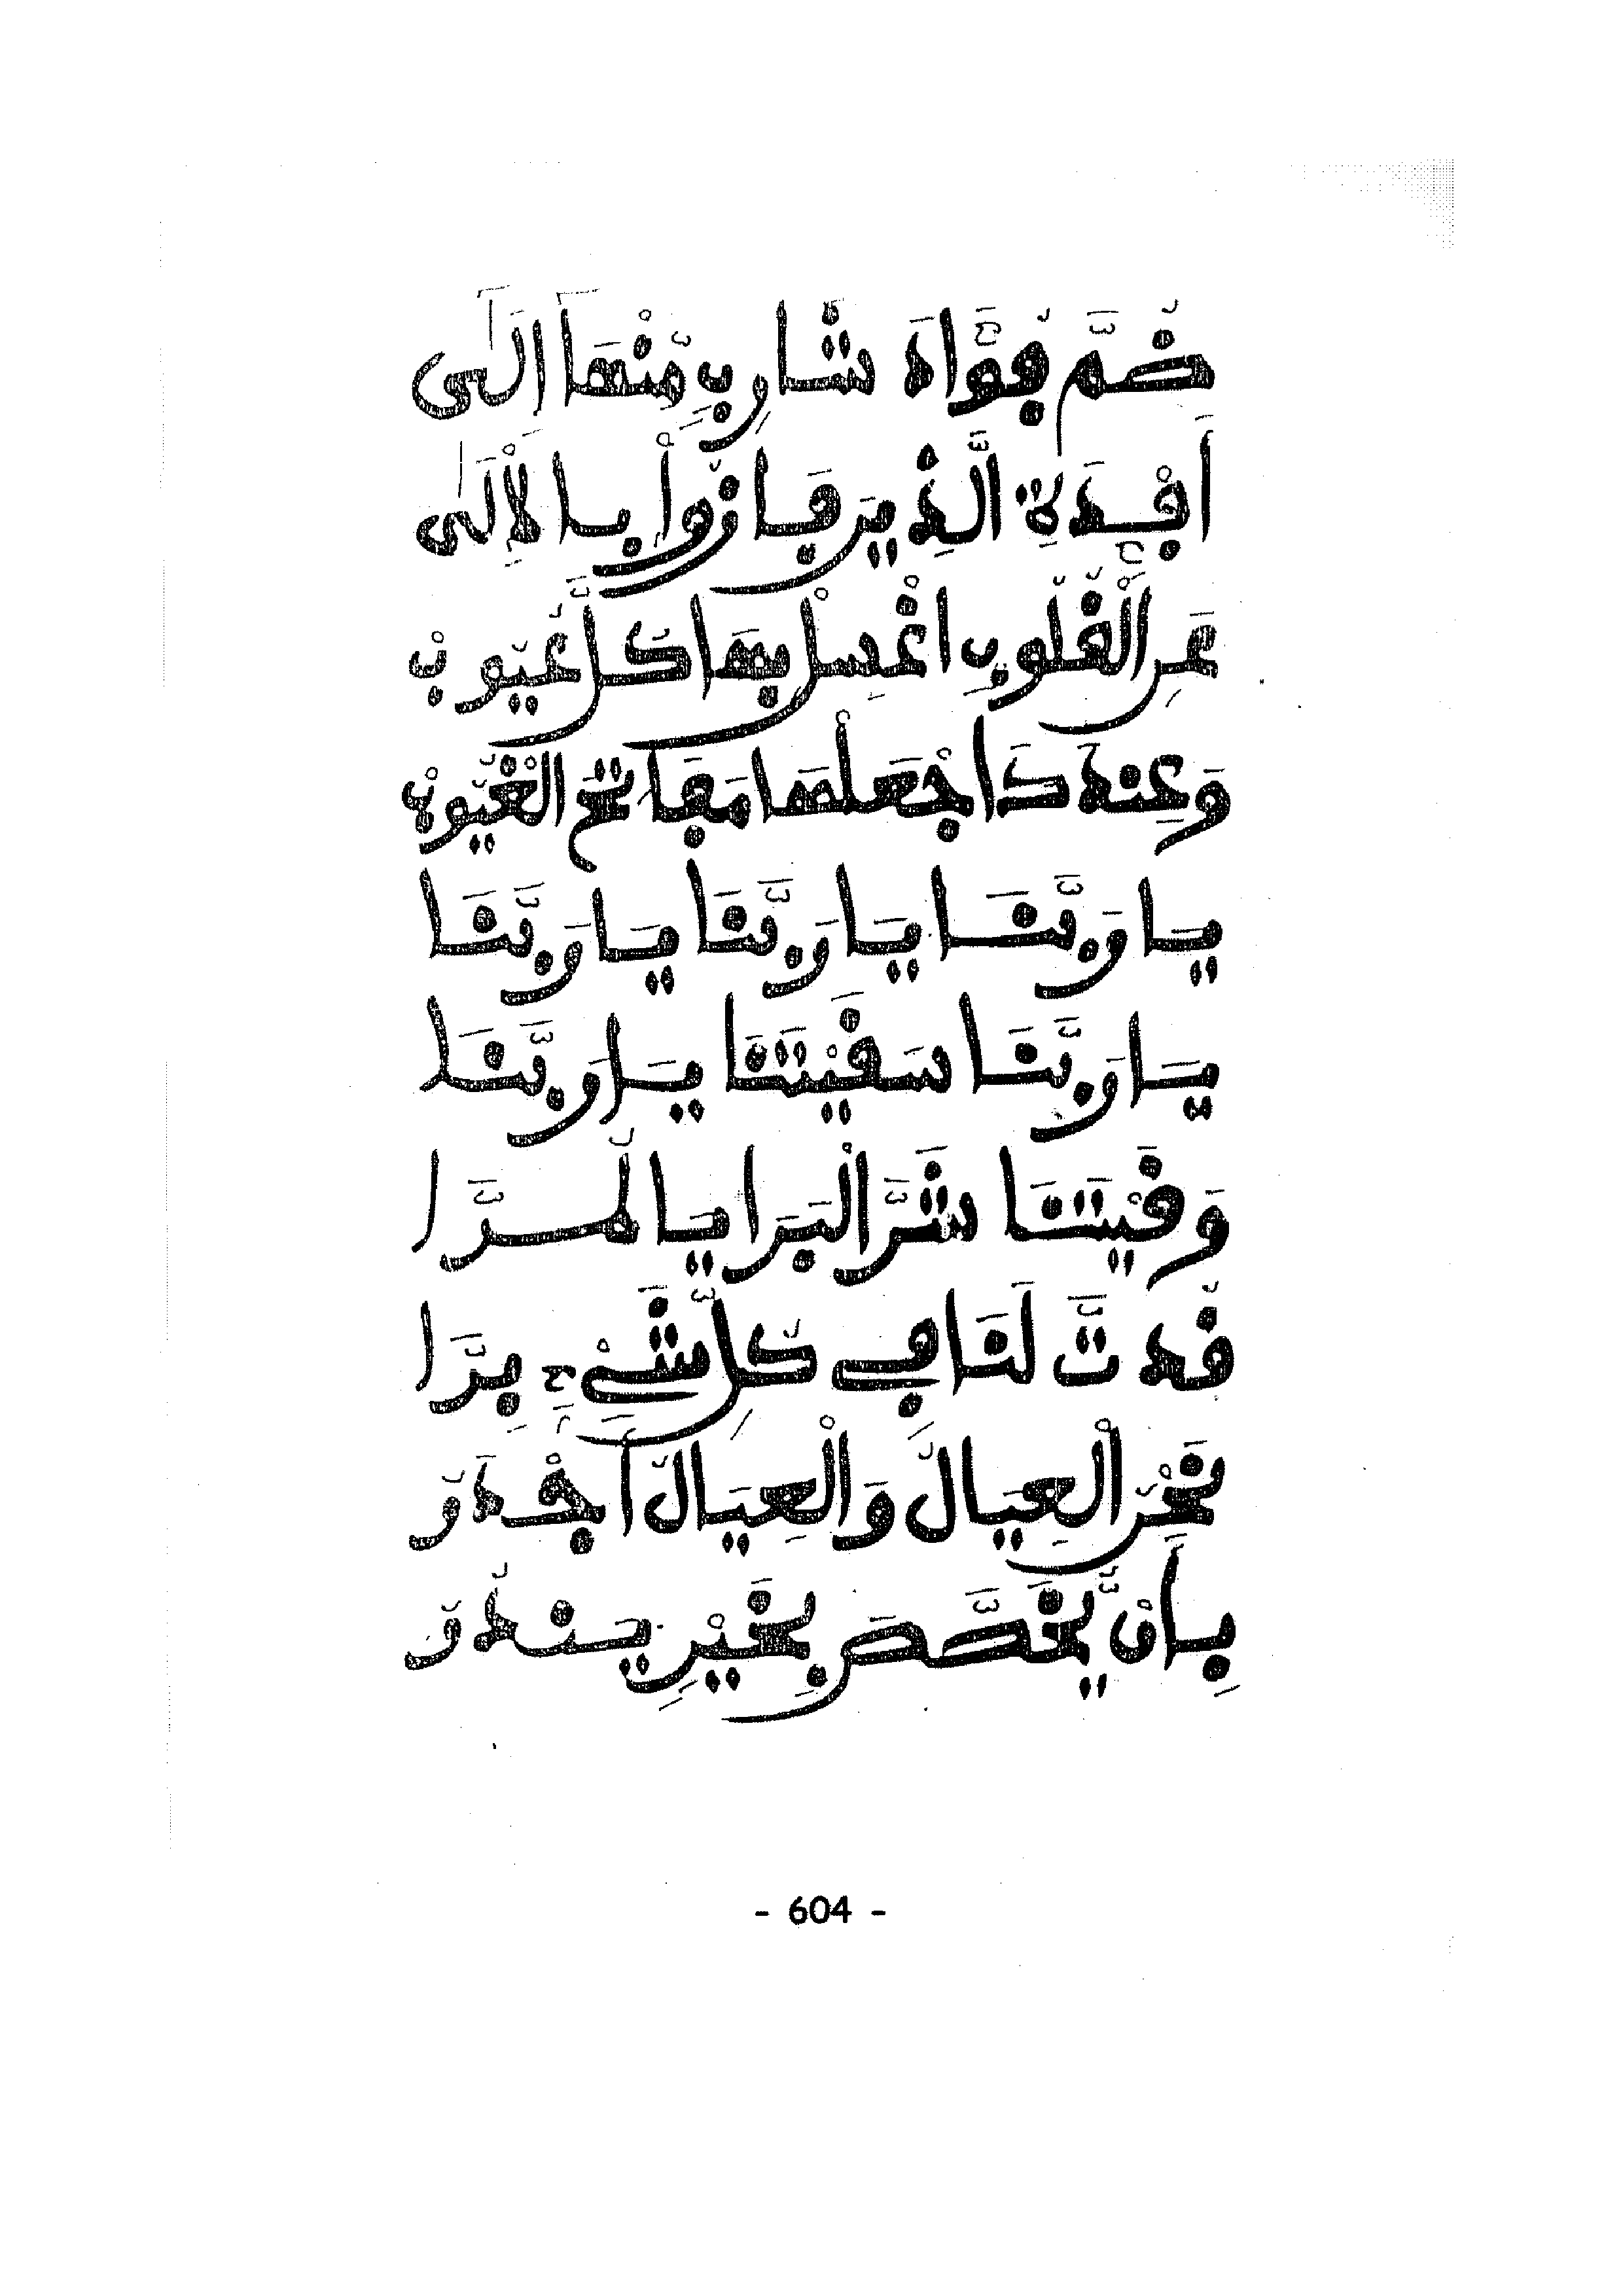 ضُمَّ فُوَّادَ شَارِبٍ مِّنْهَا إِلَى
أَفْئِدَةِ الَّذِينَ فَازُوا بِالْإِلَى
عَنِ الْقُلُوبِ اغْسِلْ بِهَا كُلَّ عُيُوبْ
وَعِنْدَ ذَا اجْعَلْهَا مَفَاتِحَ الْغُيُوبْ
يَا رَبَّنَا يَا رَبَّنَا يَا رَبَّنَا
يَا رَبَّنَا سَقَيْتَنَا يَا رَبَّنَا
وَقَيْتَنَا شَرَّ الْبَرَايَا طُرَّا
قُدتَّ لَنَا فِي كُلِّ شَيْءٍ بِرَّا
نَحْنُ الْعِيَالُ وَالْعِيَالُ أَجْدَرُ
بِأَنْ يُّخَصَّصَ بِخَيْرٍ يَنْدُرُ
- 604 -